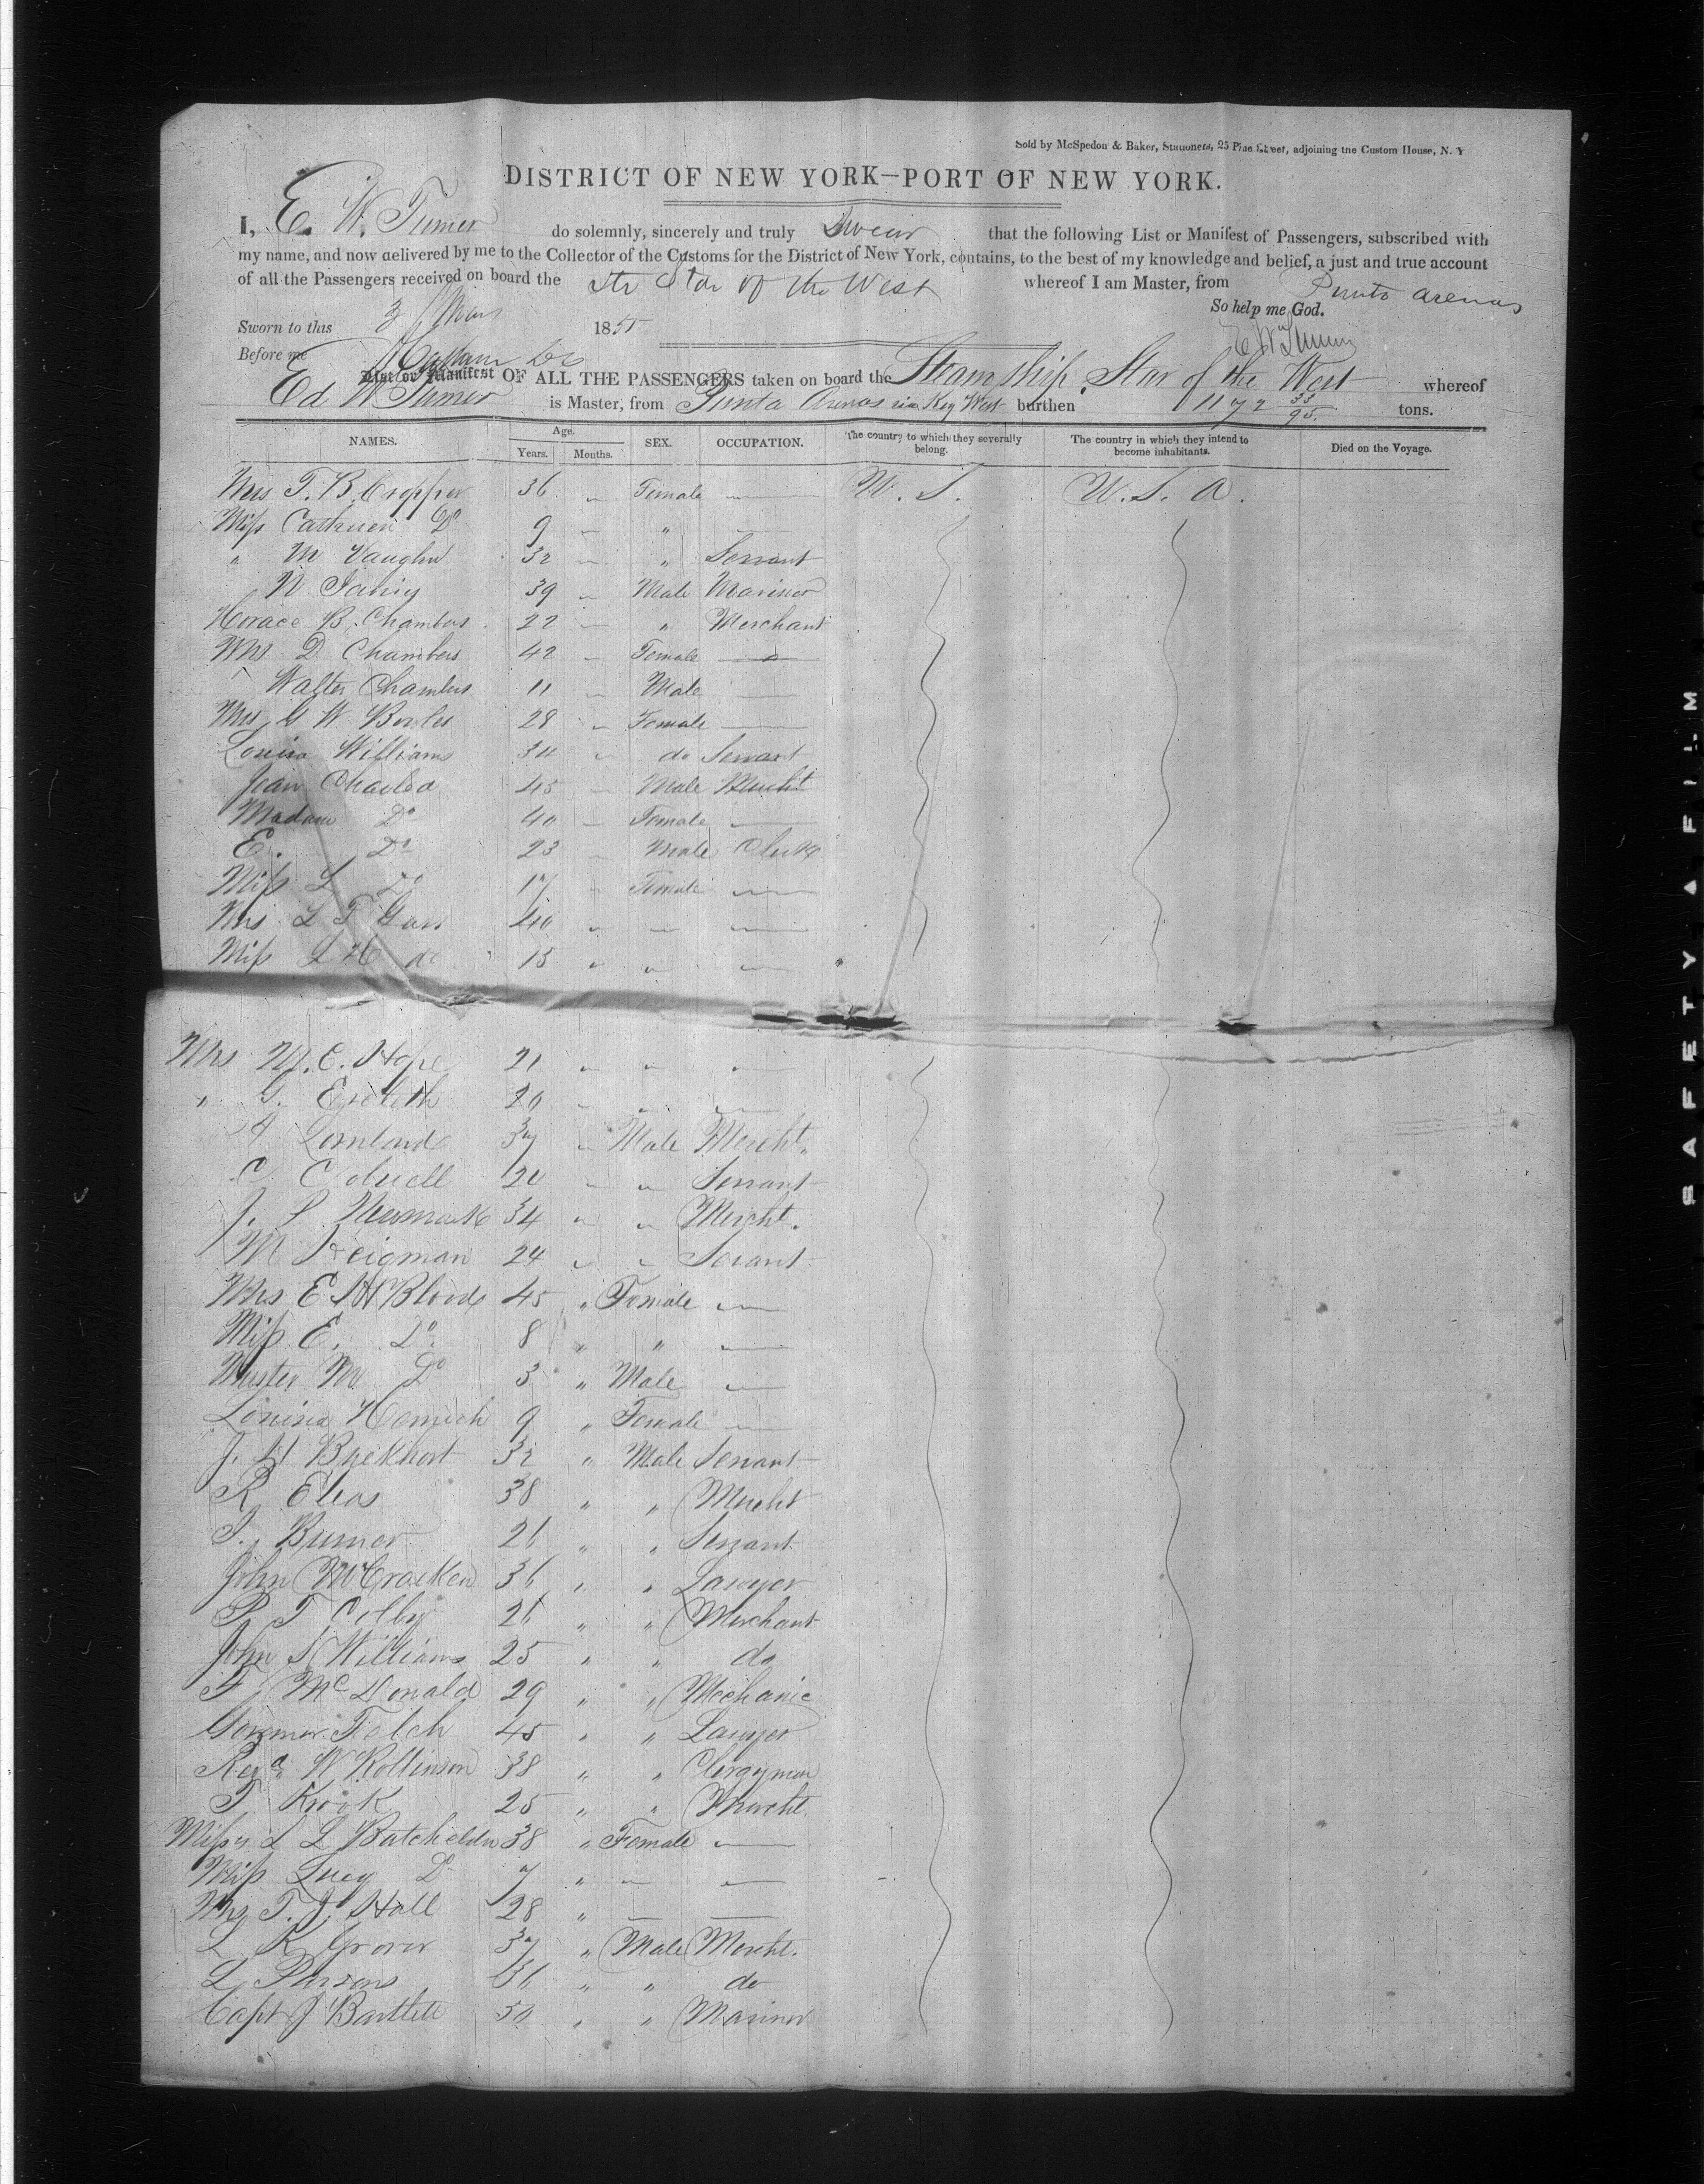 Sold by McSpedon & Baker, Stationers, 25 Pine Street, adjoining the Custom House, N. Y
DISTRICT OF NEW YORK—PORT OF NEW YORK.
I, E. W. Turner do solemnly, sincerely and truly Swear that the following List or Manifest of Passengers, subscribed with
my name, and now delivered by me to the Collector of the Customs for the District of New York, contains, to the best of my knowledge and belief, a just and true account
of all the Passengers received on board the Str Star of the West whereof I am Master, from Punta Arenas
So help me God.
Sworn to this 3 Mar 1855
E W Turner
Before me
List or Manifest OF ALL THE PASSENGERS taken on board the Steam ship Star of the West whereof
Ed W Turner is Master, from Punta Arenas via Key West burthen 1172 33/95 tons.
NAMES. Age. Years. Months. SEX. OCCUPATION. The country to which they severally belong. The country in which they intend to become inhabitants. Died on the Voyage.
Mrs T. B. Cropper 36 " Female U. S. U. S. A.
Miss Do 9 "
" M Vaughn 32 " " Servant
N 39 " Male Mariner
Horace B. Chambers 22 " Merchant
Mrs D Chambers 42 " Female
Walter Chambers 11 " Male
Mrs G W Bowles 28 " Female
Louisa Williams 34 " do Servant
Jean 45 " Male Mercht
Madam Do 40 " Female
E. Do 23 " Male Clerk
Miss L Do 17 " Female
Mrs L T 40 " "
Miss L H do 15 " "
Mrs M. E. Hope 21 " "
" G. 20 " "
37 " Male Mercht.
C 20 " " Servant
J. P. Newmark 34 " " Mercht.
M 24 " " Servant
Mrs E H Blood 45 " Female
Miss E. Do 8 " "
Master M Do 3 " Male
Louisa 9 " Female
J. H 32 " Male Servant
R Elias 38 " " Mercht
26 " " Servant
John McCracken 36 " " Lawyer
T Colby 26 " " Merchant
John S Williams 25 " " do
F McDonald 29 " " Mechanic
Governor 45 " " Lawyer
Revd W Rollinson 38 " " Clergyman
T Krook 25 " " Mercht.
L L Batchelder 38 " Female
Miss Lucy Do 7 "
Mrs T. J. Hall 28 "
L R Grover 37 " Male Mercht.
L Parsons 36 " " do
Capt J Bartlett 50 " " Mariner